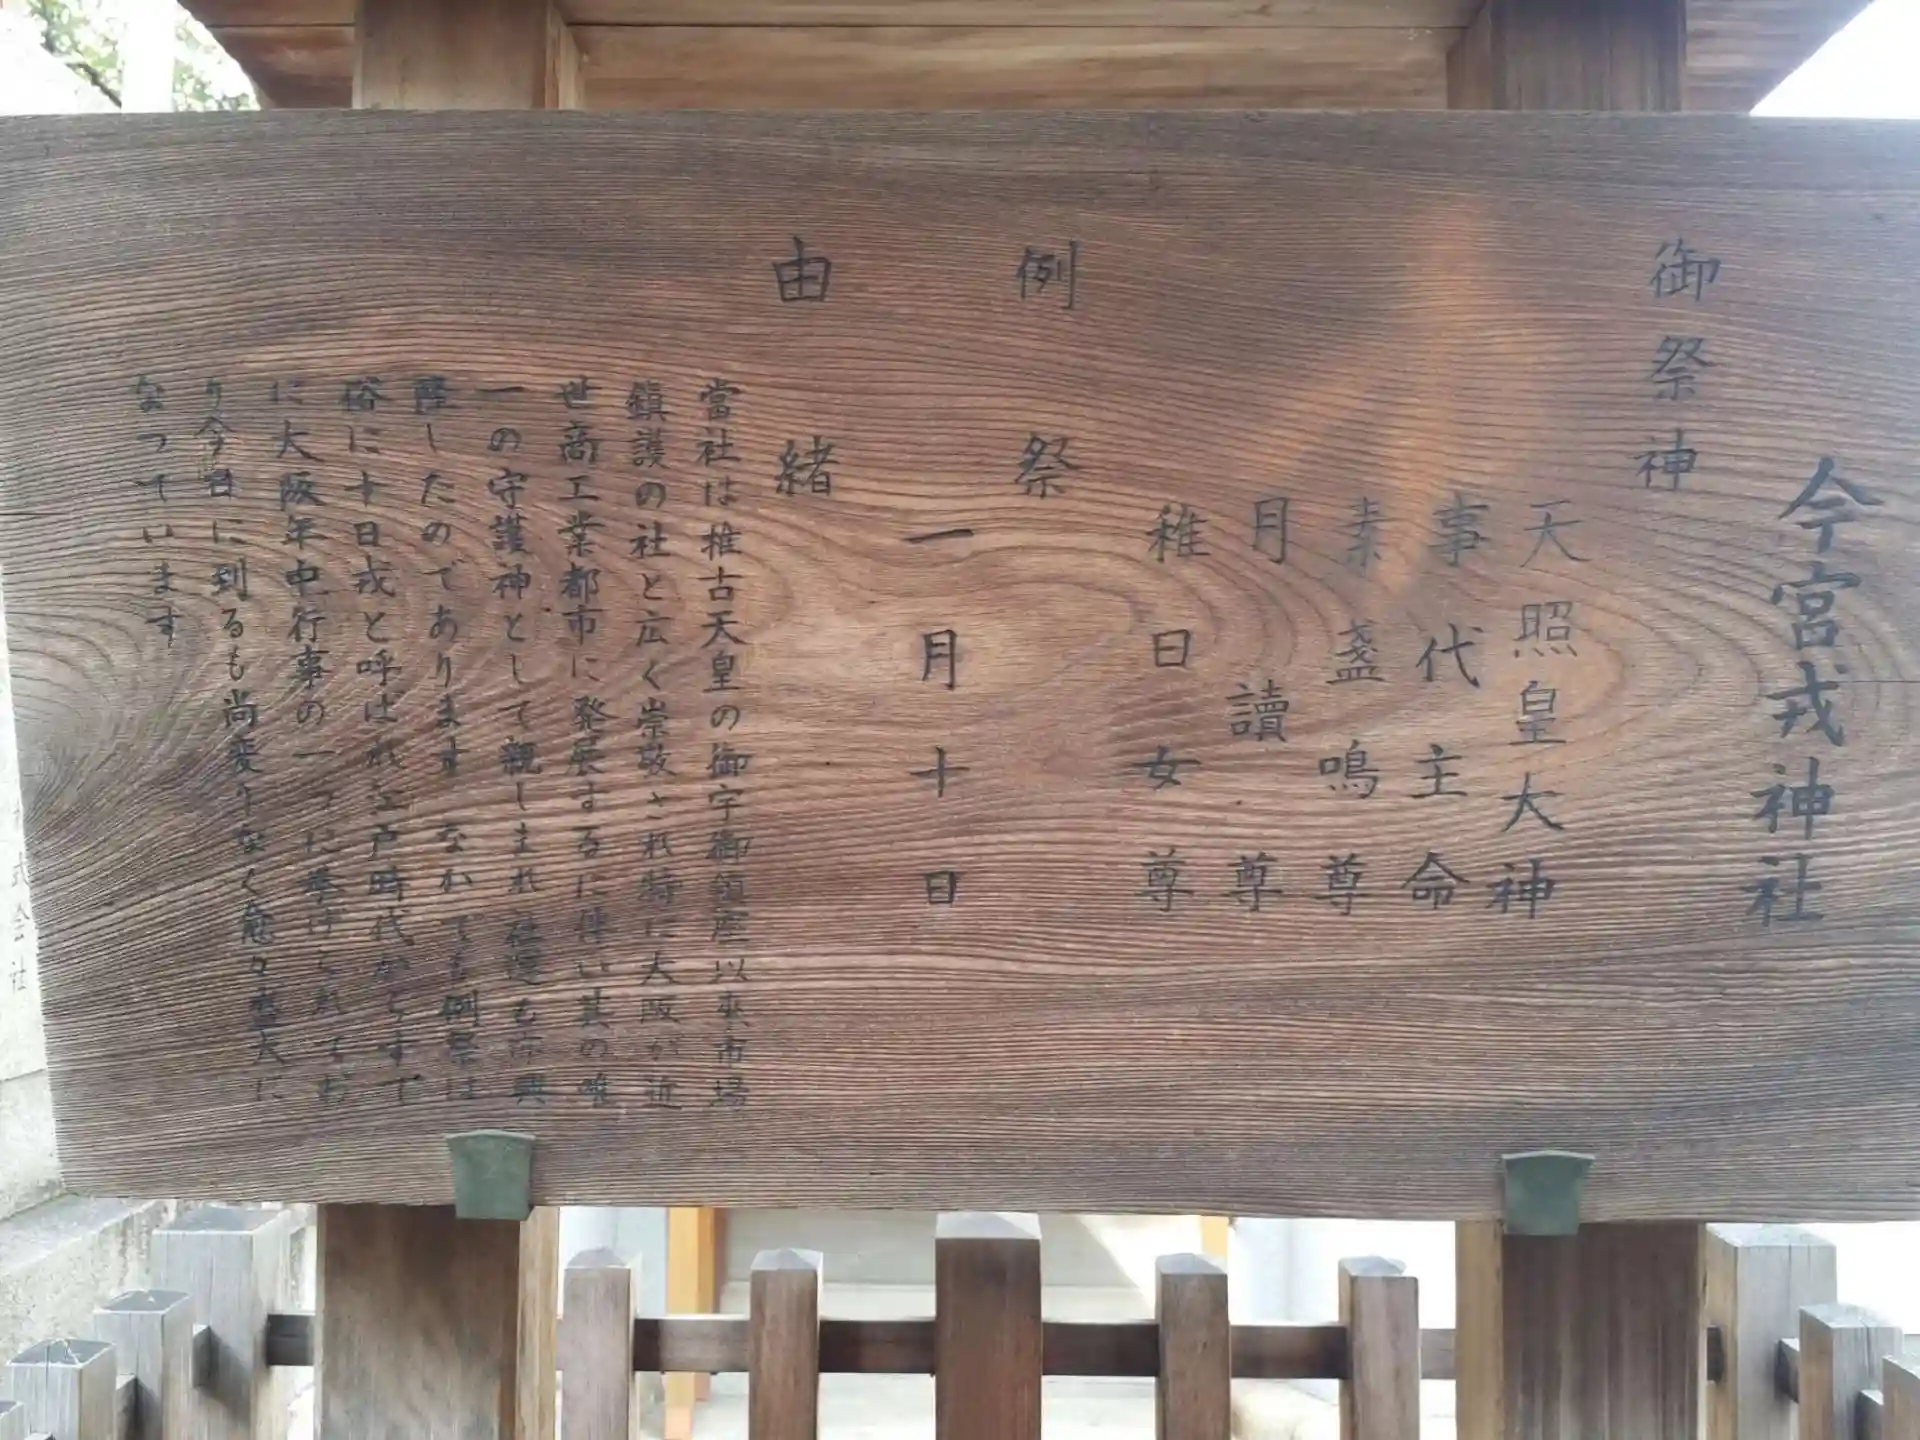 今宮戎神社
御祭神
天照皇大神
事代主命
素盞鳴尊
月讀尊
稚日女尊
例祭
一月十日
由緒
當社は推古天皇の御宇御鎮座以来市場
鎮護の社と広く崇敬され特に大阪が近
世商工業都市に発展するに伴い其の唯
一の守護神として親しまれ社運も亦興
隆したのであります なかでも例祭は
俗に十日戎と呼ばれ江戸時代からすで
に大阪年中行事の一つに挙げられてお
り今日に到るも尚変りなく愈々盛大に
なっています
式会社